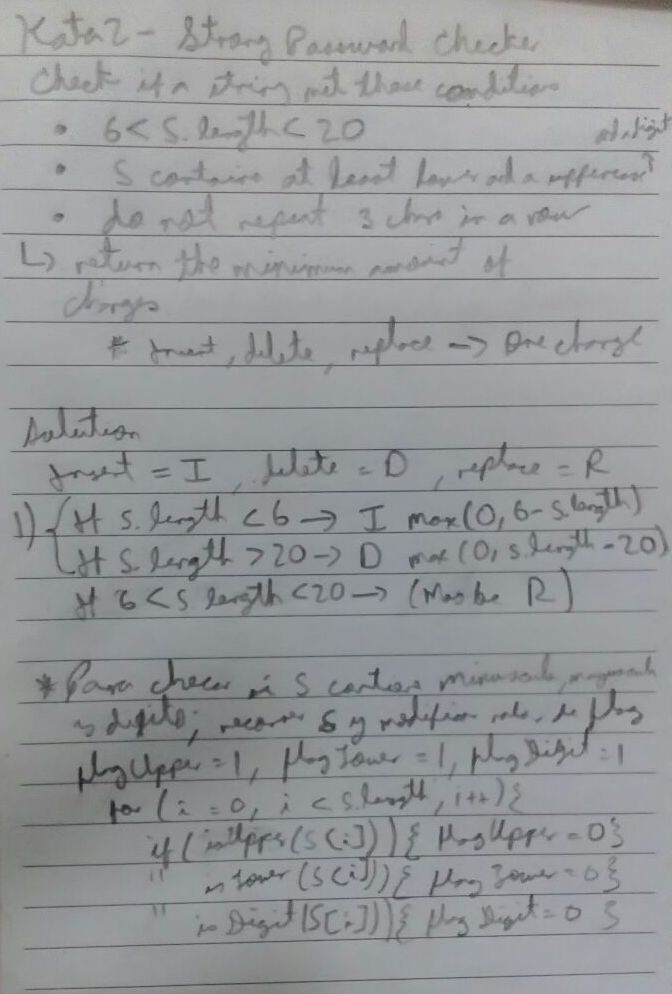 Kata 2 - Strong Password Checker
Check if a string met these conditions
• 6 < S.length < 20
and a digit
• S contains at least lower and a uppercase
• do not repeat 3 char in a row
↳ return the minimum amount of
changes
* Insert, delete, replace -> One change
Solution
Insert = I, delete = D, replace = R
1) { If S.length < 6 -> I max(0, 6 - S.length)
If S.length > 20 -> D max(0, S.length - 20)
If 6 < S.length < 20 -> (Maybe R)
* Para checar si S contiene minuscula, mayuscula
digito; recorrer S y modificar valor de flag
flagUpper = 1, flagLower = 1, flagDigit = 1
for (i = 0, i < S.length, i++){
if (isUpper(S[i])){ flagUpper = 0}
" isLower(S[i])){ flagLower = 0}
" isDigit(S[i])){ flagDigit = 0 }